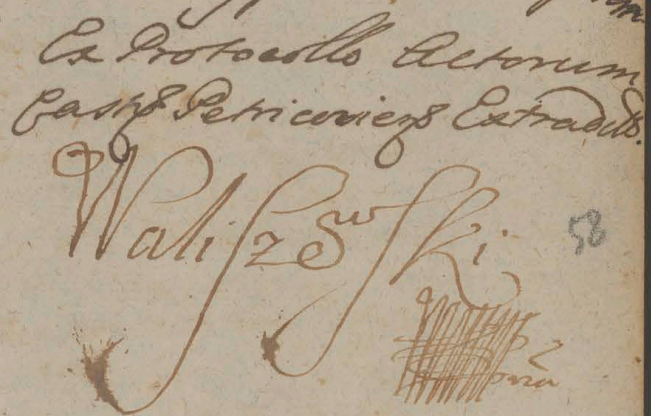 Ex Protocollo Actorum
Castr Petricovien Extradit.
Waliszewski
58